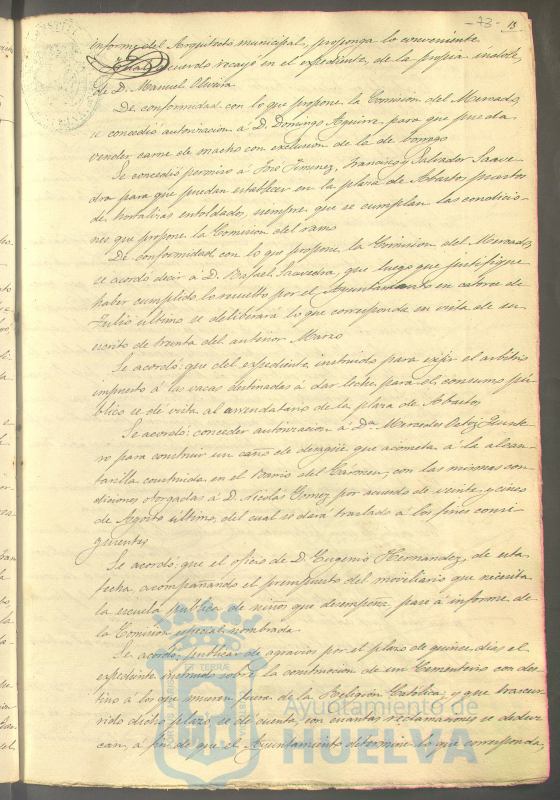 -73- 13
informe del Arquitecto municipal, proponga lo conveniente
Igual acuerdo recayó en el expediente, de la propia indole,
de D. Manuel Oliveira
De conformidad con lo que propone la Comisión del Mercado,
se concedió autorizacion á D. Domingo Aguirre para que pueda
vender carne de macho con exclusion de la de borrego
Se concedió permiso á José Jimenez, Francisco y Salvador Saave
dra para que puedan establecer en la plaza de Abastos puestos
de hortalizas entoldados, siempre que se cumplan las condicio-
nes que propone la Comision del ramo
De conformidad con lo que propone la Comision del Mercado,
se acordó decir á D. Rafael Saavedra, que luego que justifique
haber cumplido lo resuelto por el Ayuntamiento en catorce de
Julio último se deliberará lo que corresponda en vista de su
escrito de treinta del anterior Marzo
Se acordó: que del expediente instruido para exijir el arbitrio
impuesto á las vacas destinadas á dar leche para el consumo pú-
blico se dé vista al arrendatario de la plaza de Abastos
Se acordó: conceder autorizacion á Dª Mercedes Quinte
ro para construir un caño de desagüe que acometa á la alcan-
tarilla construida en el Barrio del Carmen, con las mismas con
diciones otorgadas á D. Nicolás Gomez por acuerdo de veinte y cinco
de Agosto último, del cual se dará traslado á los fines consi-
guientes
Se acordó: que el oficio de D. Eugenio Hernandez, de esta
fecha, acompañando el presupuesto del moviliario que necesita
la escuela pública de niños que desempeña pase á informe de
la Comisión especial nombrada
Se acordó: publicar de agravios por el plazo de quince dias el
expediente instruido sobre la construccion de un Cementerio con des-
tino á los que mueren fuera de la Religión Católica; y que trascur-
rido dicho plazo se dé cuenta, con cuantas reclamaciones se deduz-
can, á fin de que el Ayuntamiento determine lo que corresponda,
Ayuntamiento de
HUELVA